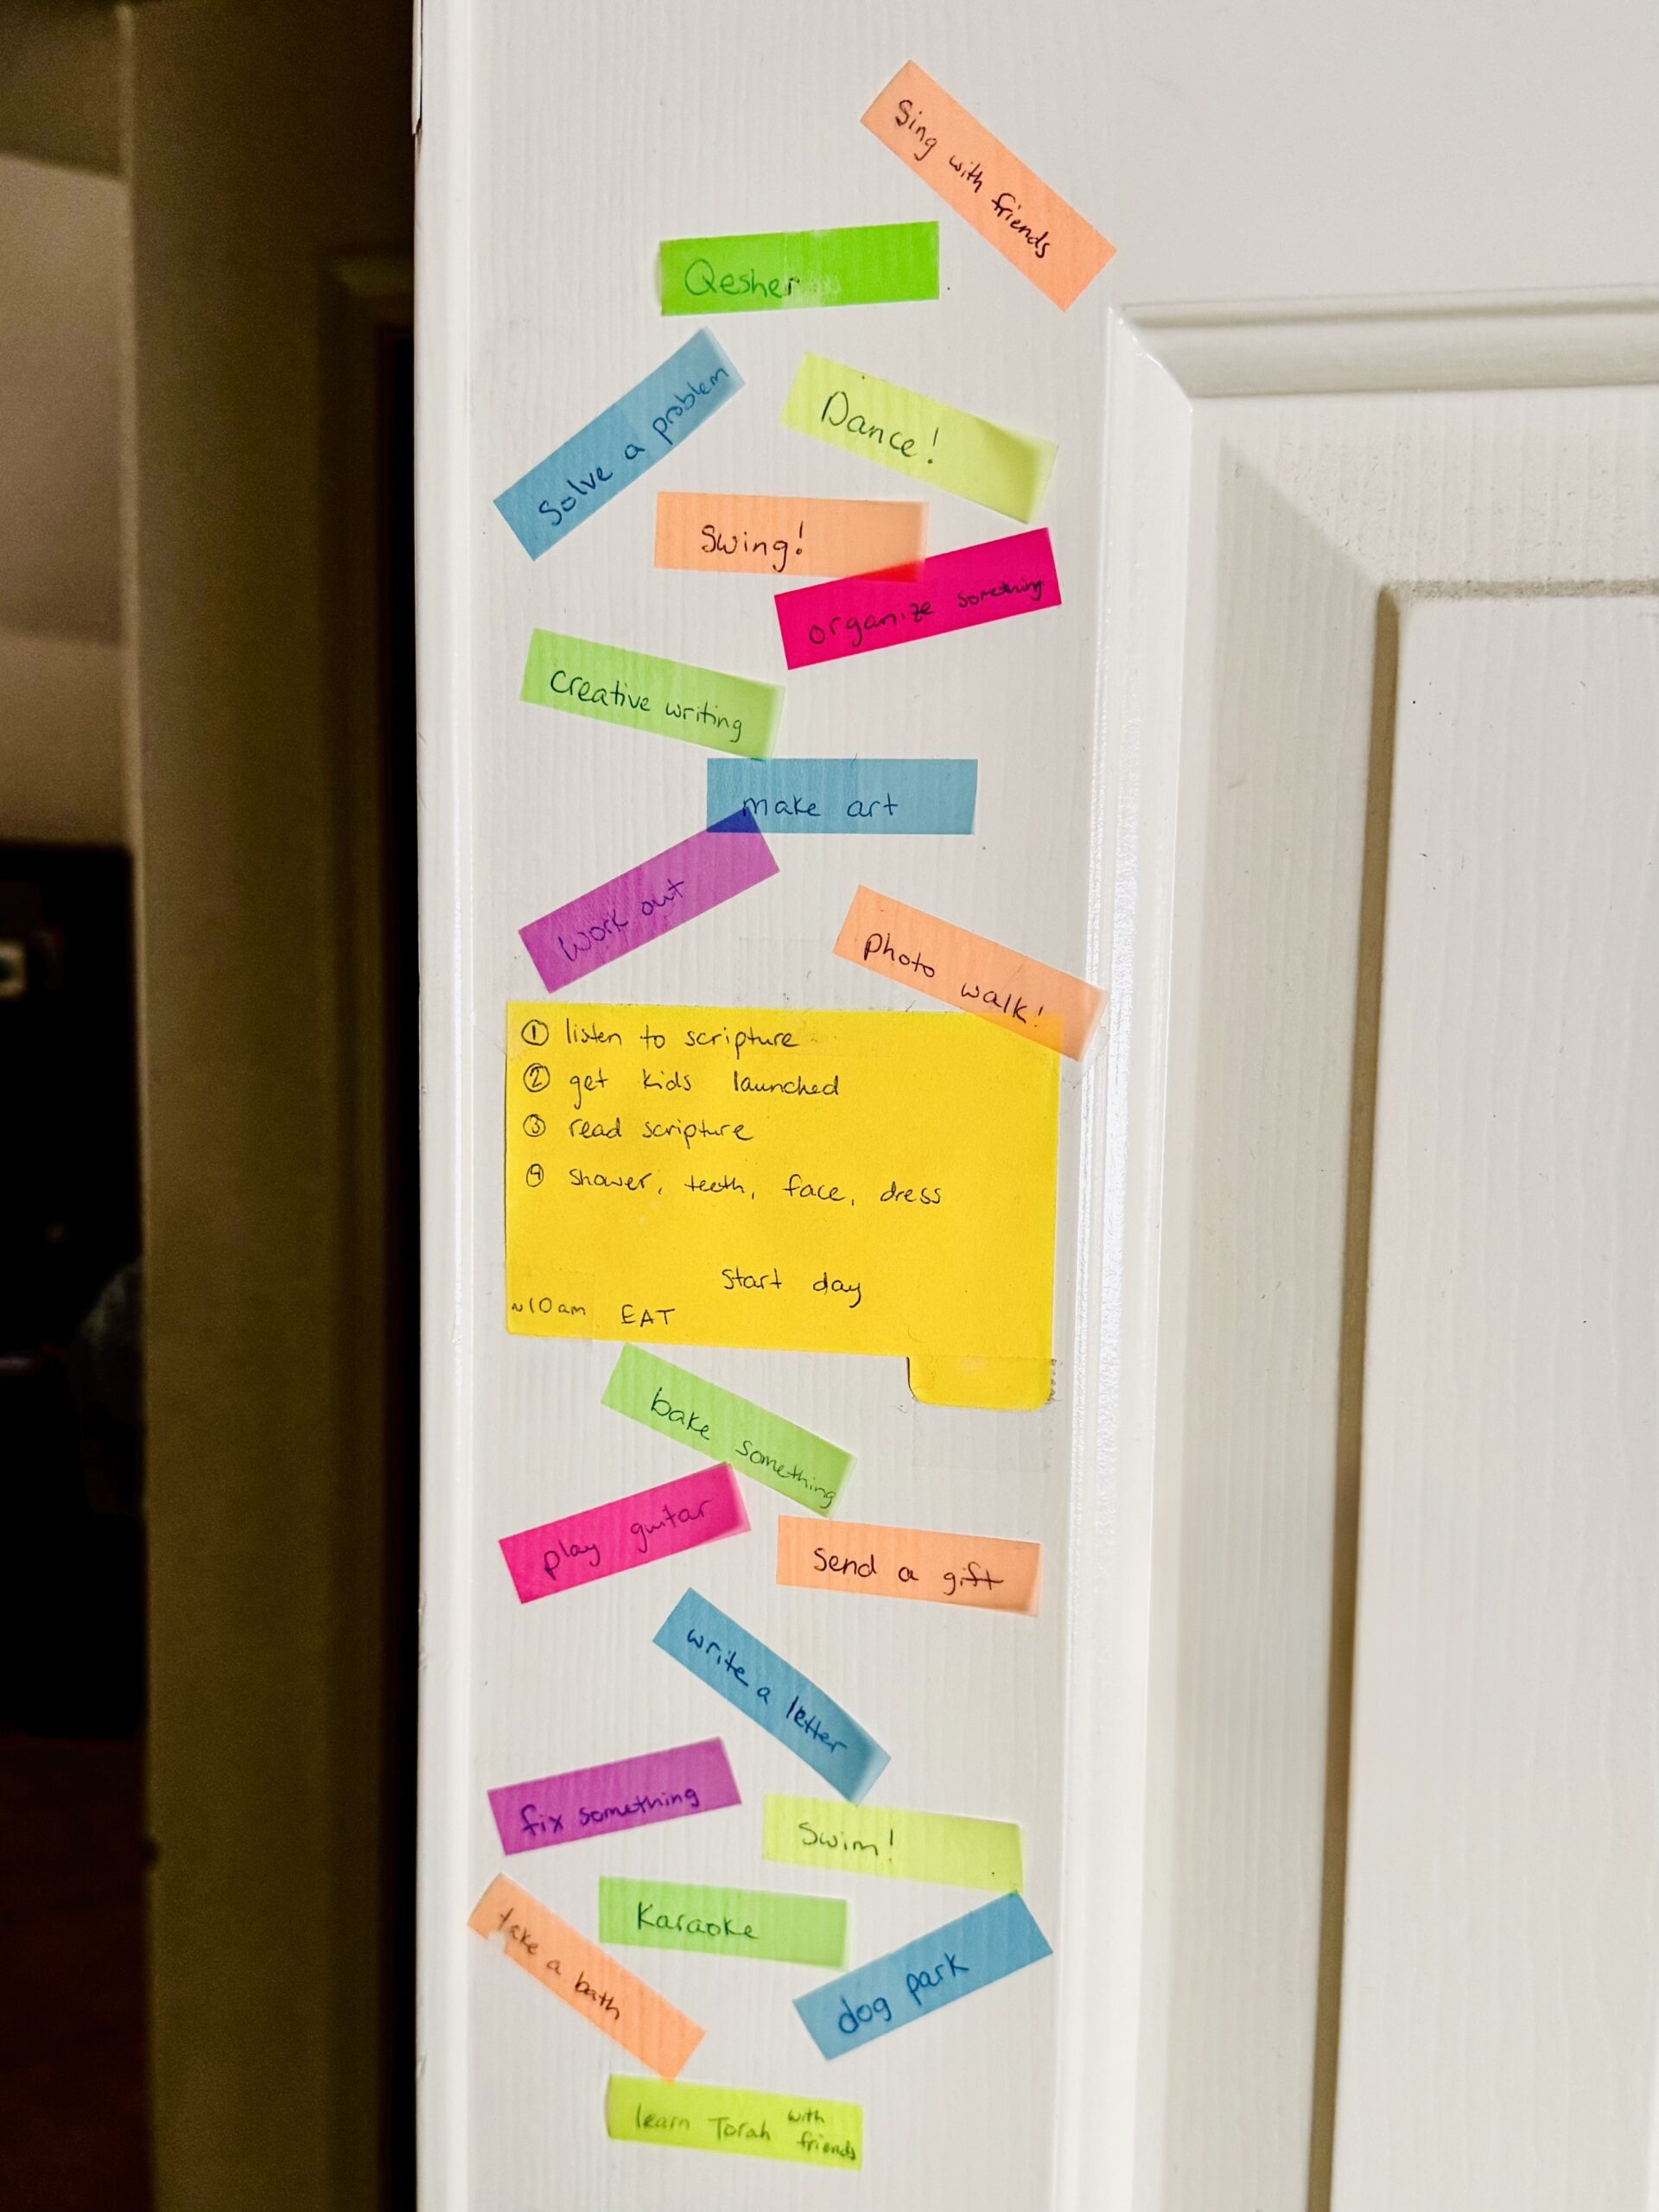 Sing with friends
Qesher
Solve a problem
Dance!
Swing!
organize something
Creative writing
make art
Work out
Photo walk!
① listen to scripture
② get kids launched
③ read scripture
④ shower, teeth, face, dress
Start day
~10am EAT
bake something
play guitar
Send a gift
write a letter
fix something
Swim!
Karaoke
take a bath
dog park
learn Torah with
friends